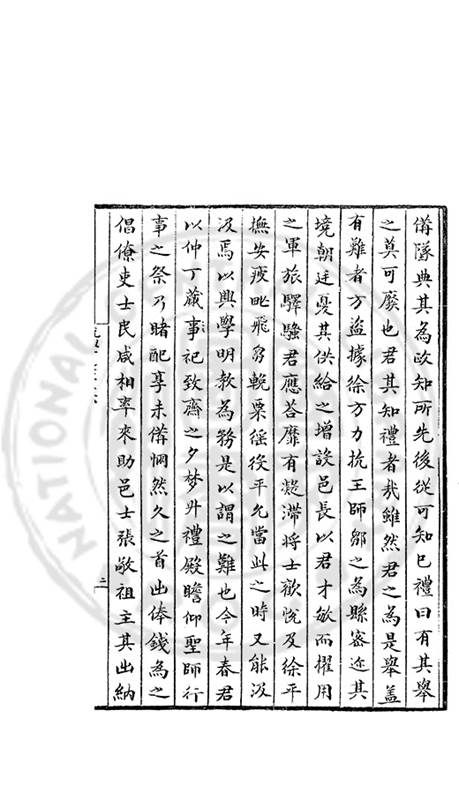 備隊典其為政知所先後從可知已禮曰有其舉
之莫可廢也君其知禮者哉雖然君之為是舉蓋
有難者方盜據徐方力抗王師鄒之為縣密迩其
境朝廷憂其供給之增設邑長以君才敏而擢用
之軍旅驛騷君應荅靡有凝滯將士歡悅及徐平
撫安疲甿飛芻輓粟徭役平允當此之時又能汲
汲焉以興學明教為務是以謂之難也今年春君
以仲丁蕆事祀致齋之夕梦升禮殿瞻仰聖師行
事之祭乃睹配享未備惘然久之首出俸錢為之
倡僚吏士民咸相率來助邑士張敬祖主其出納
二
NATIONAL